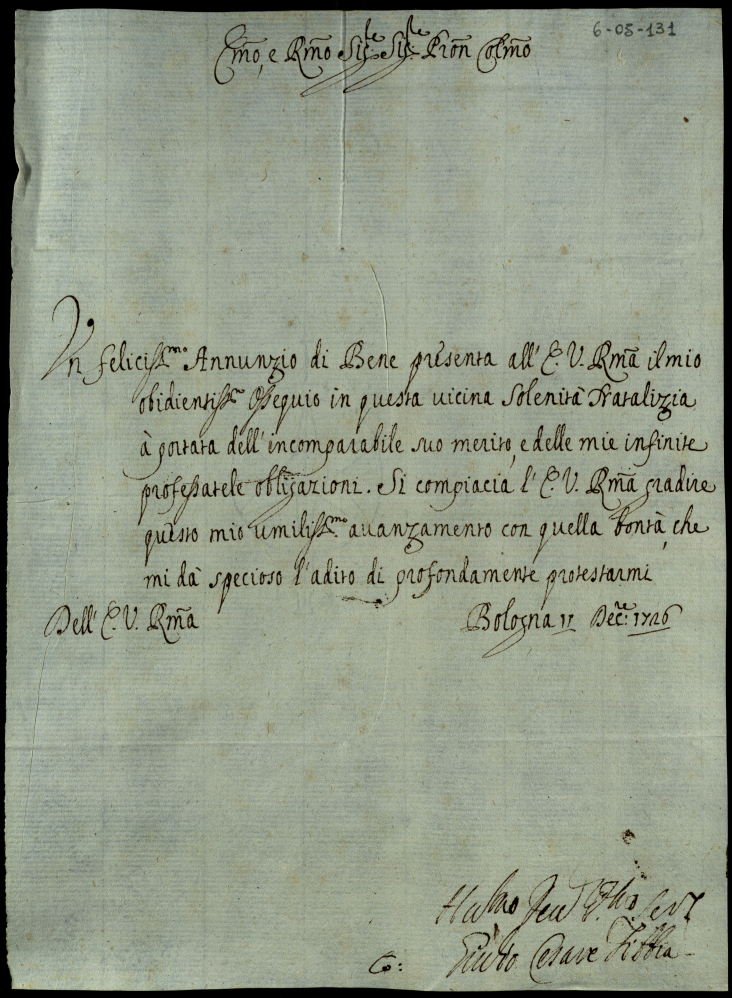 6-05-131
Emo, e Rmo Sig.re Sig.re Pron Colmo
Un feliciss.mo Annunzio di Bene presenta all' E. V. Rma il mio
obidientiss.o Ossequio in questa vicina Solenità Natalizia
à portata dell' incomparabile suo merito, e delle mie infinite
professatele obligazioni. Si compiacia l' E. V. Rma gradire
questo mio umiliss.mo avanzamento con quella bontà, che
mi dà specioso l'adito di profondamente protestarmi
Dell' E. V. Rma
Bologna 11 Dec.re 1726
Giulio Cesare Fibbia